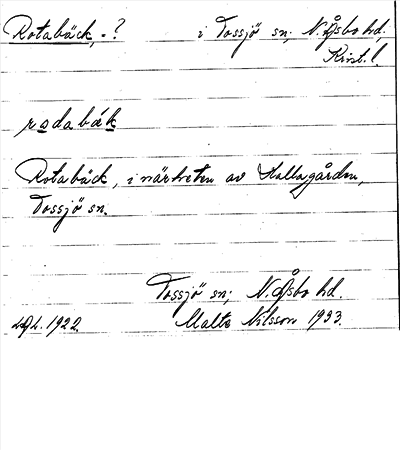 Rotabäck, -? i Tossjö sn; N. Åsbo hd.
Krist. l.
rodabák
Rotabäck, i närheten av Hallagården,
Tossjö sn.
Tossjö sn; N. Åsbo hd.
1922. Malte Nilsson 1933.